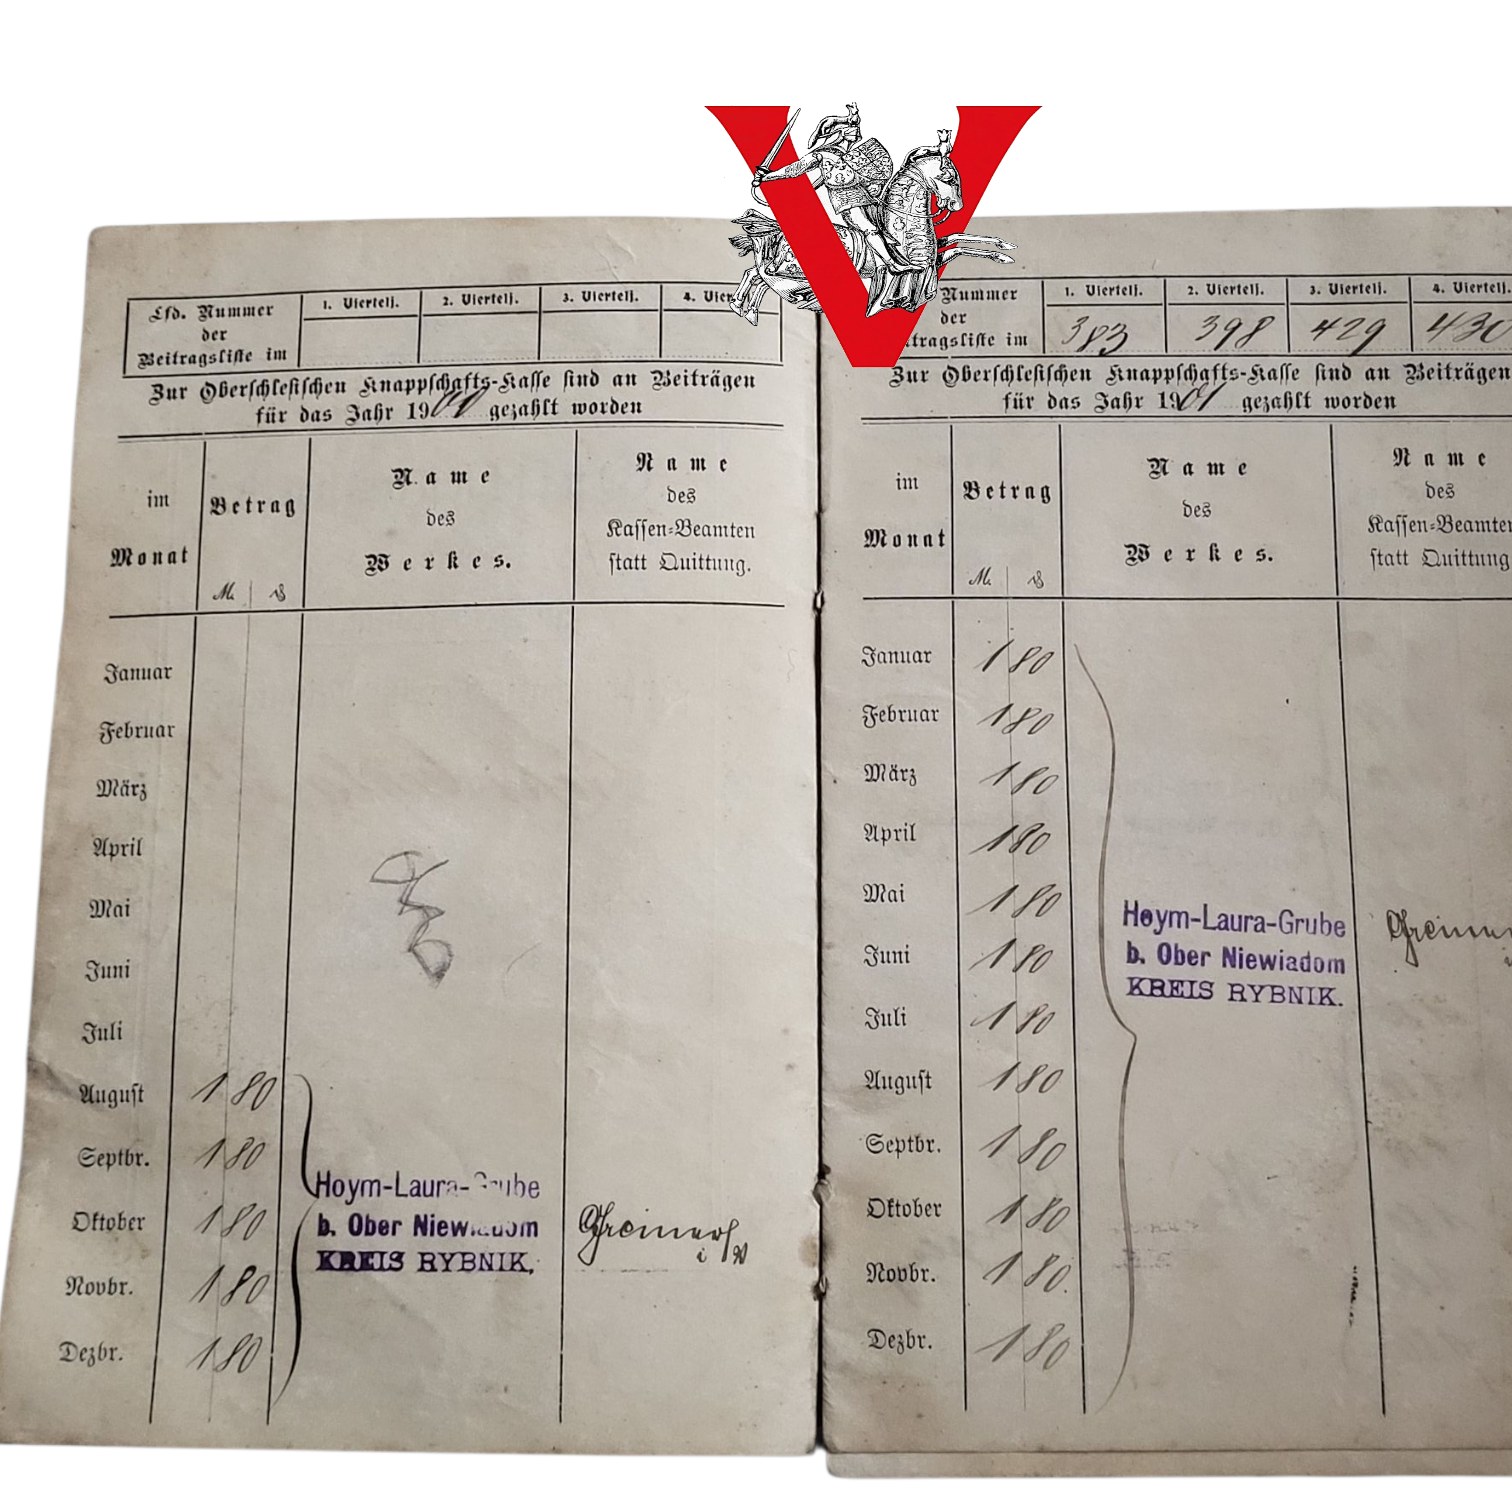 Lfd. Nummer
der
Beitragsliste im
1. Viertelj.
2. Viertelj.
3. Viertelj.
4. Viertelj.
Zur Oberschlesischen Knappschafts-Kasse sind an Beiträgen
für das Jahr 1900 gezahlt worden
im
Monat
Betrag
M.
₰
Name
des
Werkes.
Name
des
Kassen-Beamten
statt Quittung.
Januar
Februar
März
April
Mai
Juni
Juli
August 1 80
Septbr. 1 80
Oktober 1 80
Novbr. 1 80
Dezbr. 1 80
Hoym-Laura-Grube
b. Ober Niewiadom
KREIS RYBNIK.
V
Nummer
der
tragsliste im
1. Viertelj.
2. Viertelj.
3. Viertelj.
4. Viertelj.
383 398 429 430
Zur Oberschlesischen Knappschafts-Kasse sind an Beiträgen
für das Jahr 1901 gezahlt worden
im
Monat
Betrag
M.
₰
Name
des
Werkes.
Name
des
Kassen-Beamten
statt Quittung
Januar 1 80
Februar 1 80
März 1 80
April 1 80
Mai 1 80
Juni 1 80
Juli 1 80
August 1 80
Septbr. 1 80
Oktober 1 80
Novbr. 1 80.
Dezbr. 1 80
Hoym-Laura-Grube
b. Ober Niewiadom
KREIS RYBNIK.